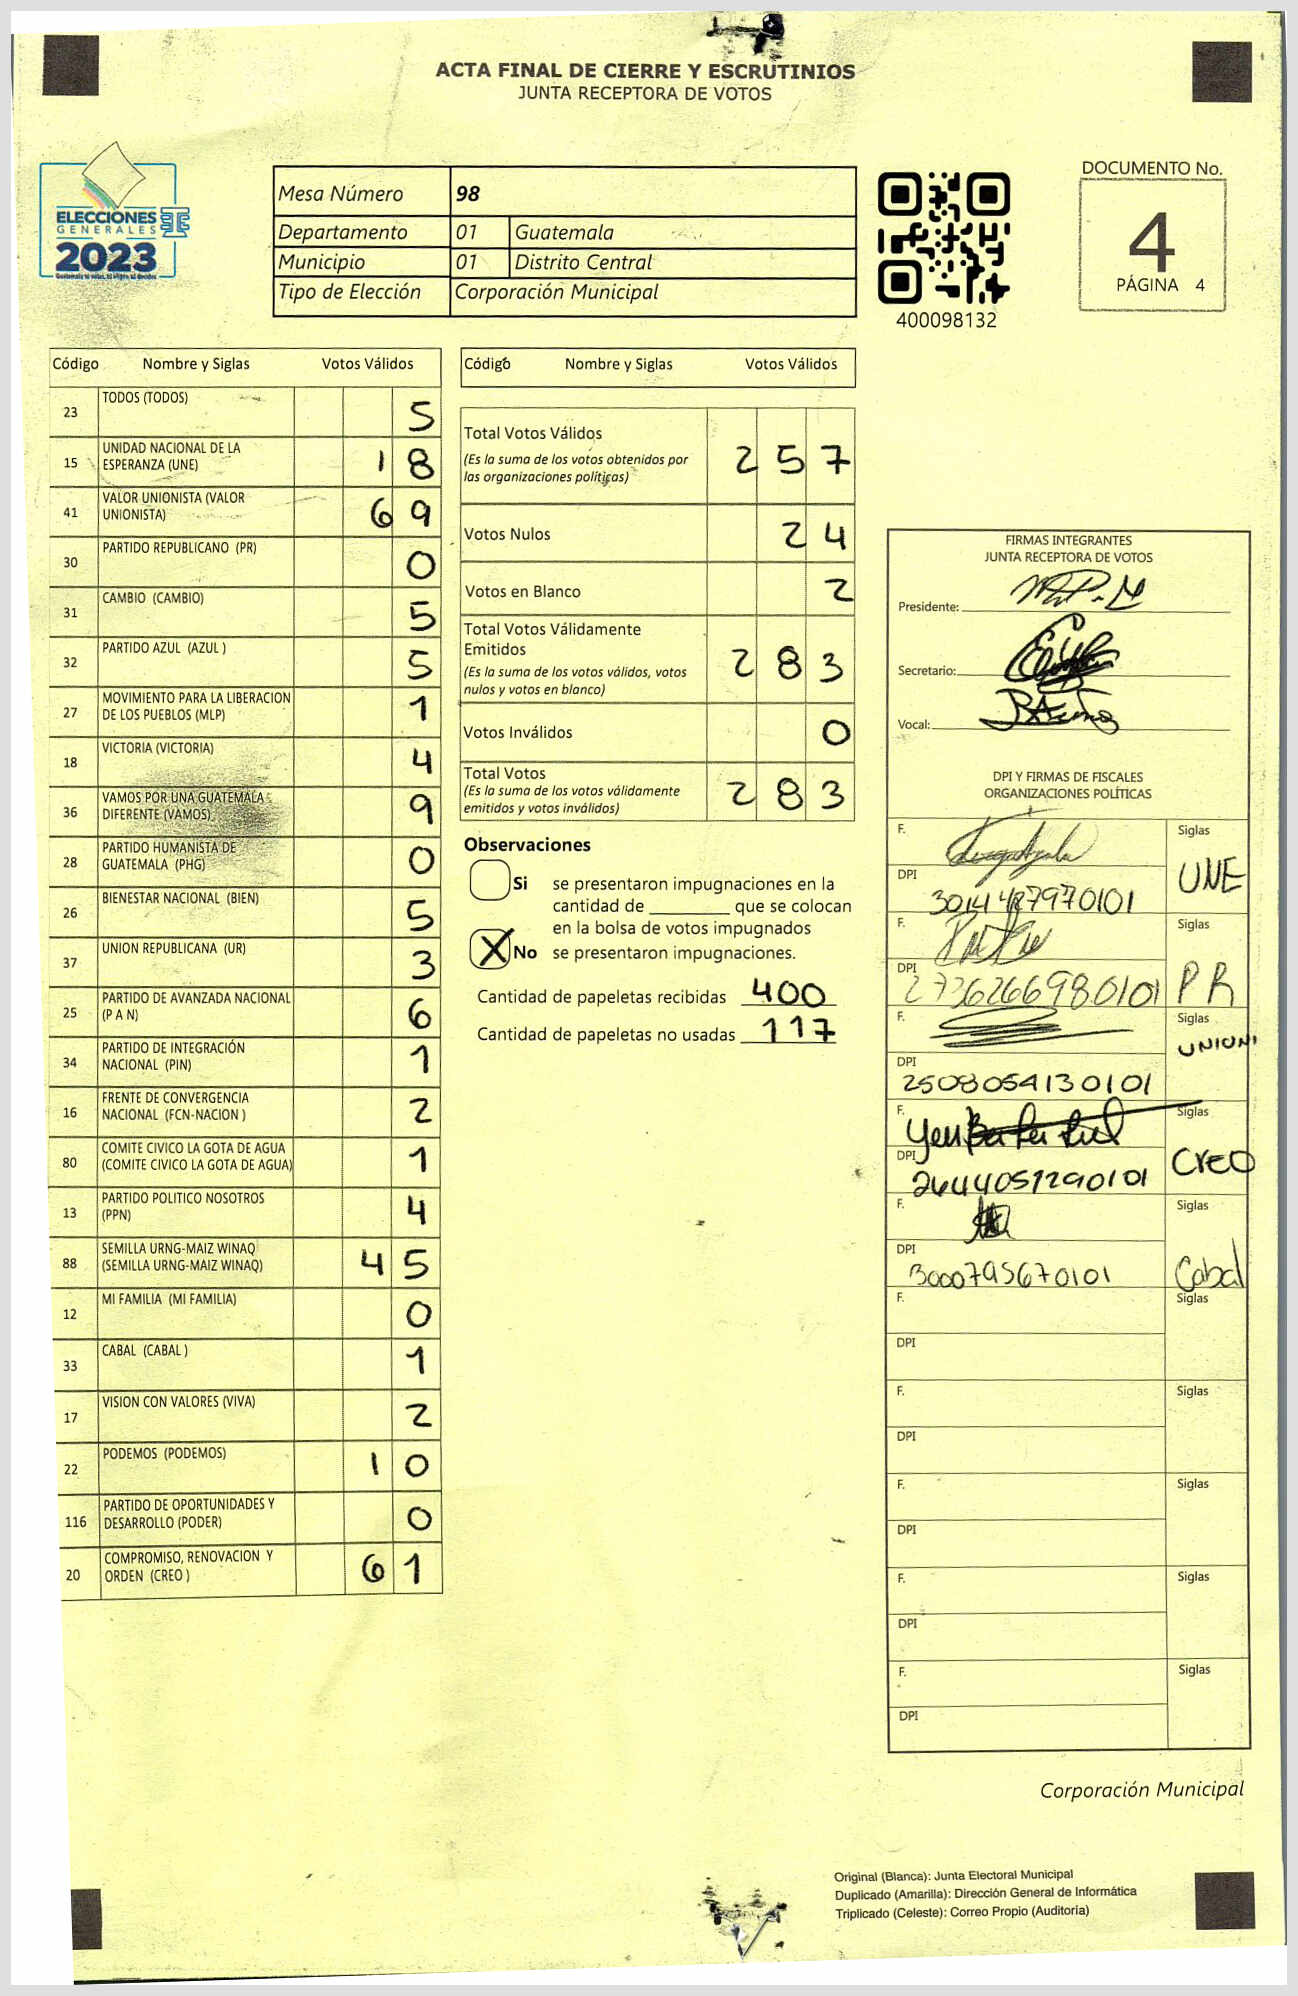 ACTA FINAL DE CIERRE Y ESCRUTINIOS
JUNTA RECEPTORA DE VOTOS
ELECCIONES
GENERALES
2023
Mesa Número 98
Departamento 01 Guatemala
Municipio 01 Distrito Central
Tipo de Elección Corporación Municipal
400098132
DOCUMENTO No.
4
PÁGINA 4
Código Nombre y Siglas Votos Válidos
23 TODOS (TODOS) 5
15 UNIDAD NACIONAL DE LA
ESPERANZA (UNE) 18
41 VALOR UNIONISTA (VALOR
UNIONISTA) 69
30 PARTIDO REPUBLICANO (PR) 0
31 CAMBIO (CAMBIO) 5
32 PARTIDO AZUL (AZUL ) 5
27 MOVIMIENTO PARA LA LIBERACION
DE LOS PUEBLOS (MLP) 1
18 VICTORIA (VICTORIA) 4
36 VAMOS POR UNA GUATEMALA
DIFERENTE (VAMOS) 9
28 PARTIDO HUMANISTA DE
GUATEMALA (PHG) 0
26 BIENESTAR NACIONAL (BIEN) 5
37 UNION REPUBLICANA (UR) 3
25 PARTIDO DE AVANZADA NACIONAL
(P A N) 6
34 PARTIDO DE INTEGRACIÓN
NACIONAL (PIN) 1
16 FRENTE DE CONVERGENCIA
NACIONAL (FCN-NACION ) 2
80 COMITE CIVICO LA GOTA DE AGUA
(COMITE CIVICO LA GOTA DE AGUA) 1
13 PARTIDO POLITICO NOSOTROS
(PPN) 4
88 SEMILLA URNG-MAIZ WINAQ
(SEMILLA URNG-MAIZ WINAQ) 45
12 MI FAMILIA (MI FAMILIA) 0
33 CABAL (CABAL ) 1
17 VISION CON VALORES (VIVA) 2
22 PODEMOS (PODEMOS) 10
116 PARTIDO DE OPORTUNIDADES Y
DESARROLLO (PODER) 0
20 COMPROMISO, RENOVACION Y
ORDEN (CREO ) 61
Código Nombre y Siglas Votos Válidos
Total Votos Válidos 257
(Es la suma de los votos obtenidos por
las organizaciones políticas)
Votos Nulos 24
Votos en Blanco 2
Total Votos Válidamente
Emitidos 283
(Es la suma de los votos válidos, votos
nulos y votos en blanco)
Votos Inválidos 0
Total Votos 283
(Es la suma de los votos válidamente
emitidos y votos inválidos)
Observaciones
Si se presentaron impugnaciones en la
cantidad de ________ que se colocan
en la bolsa de votos impugnados
X No se presentaron impugnaciones.
Cantidad de papeletas recibidas 400
Cantidad de papeletas no usadas 117
FIRMAS INTEGRANTES
JUNTA RECEPTORA DE VOTOS
Presidente:
Secretario:
Vocal:
DPI Y FIRMAS DE FISCALES
ORGANIZACIONES POLÍTICAS
F. Siglas
UNE
DPI
F. Siglas
PR
DPI 2736266980101
F. Siglas
UNIONI
DPI
2508054130101
F. Siglas
CREO
DPI
2644051290101
F. Siglas
Cabal
DPI
3000795670101
F. Siglas
DPI
F. Siglas
DPI
F. Siglas
DPI
F. Siglas
DPI
F. Siglas
DPI
Corporación Municipal
Original (Blanca): Junta Electoral Municipal
Duplicado (Amarilla): Dirección General de Informática
Triplicado (Celeste): Correo Propio (Auditoría)